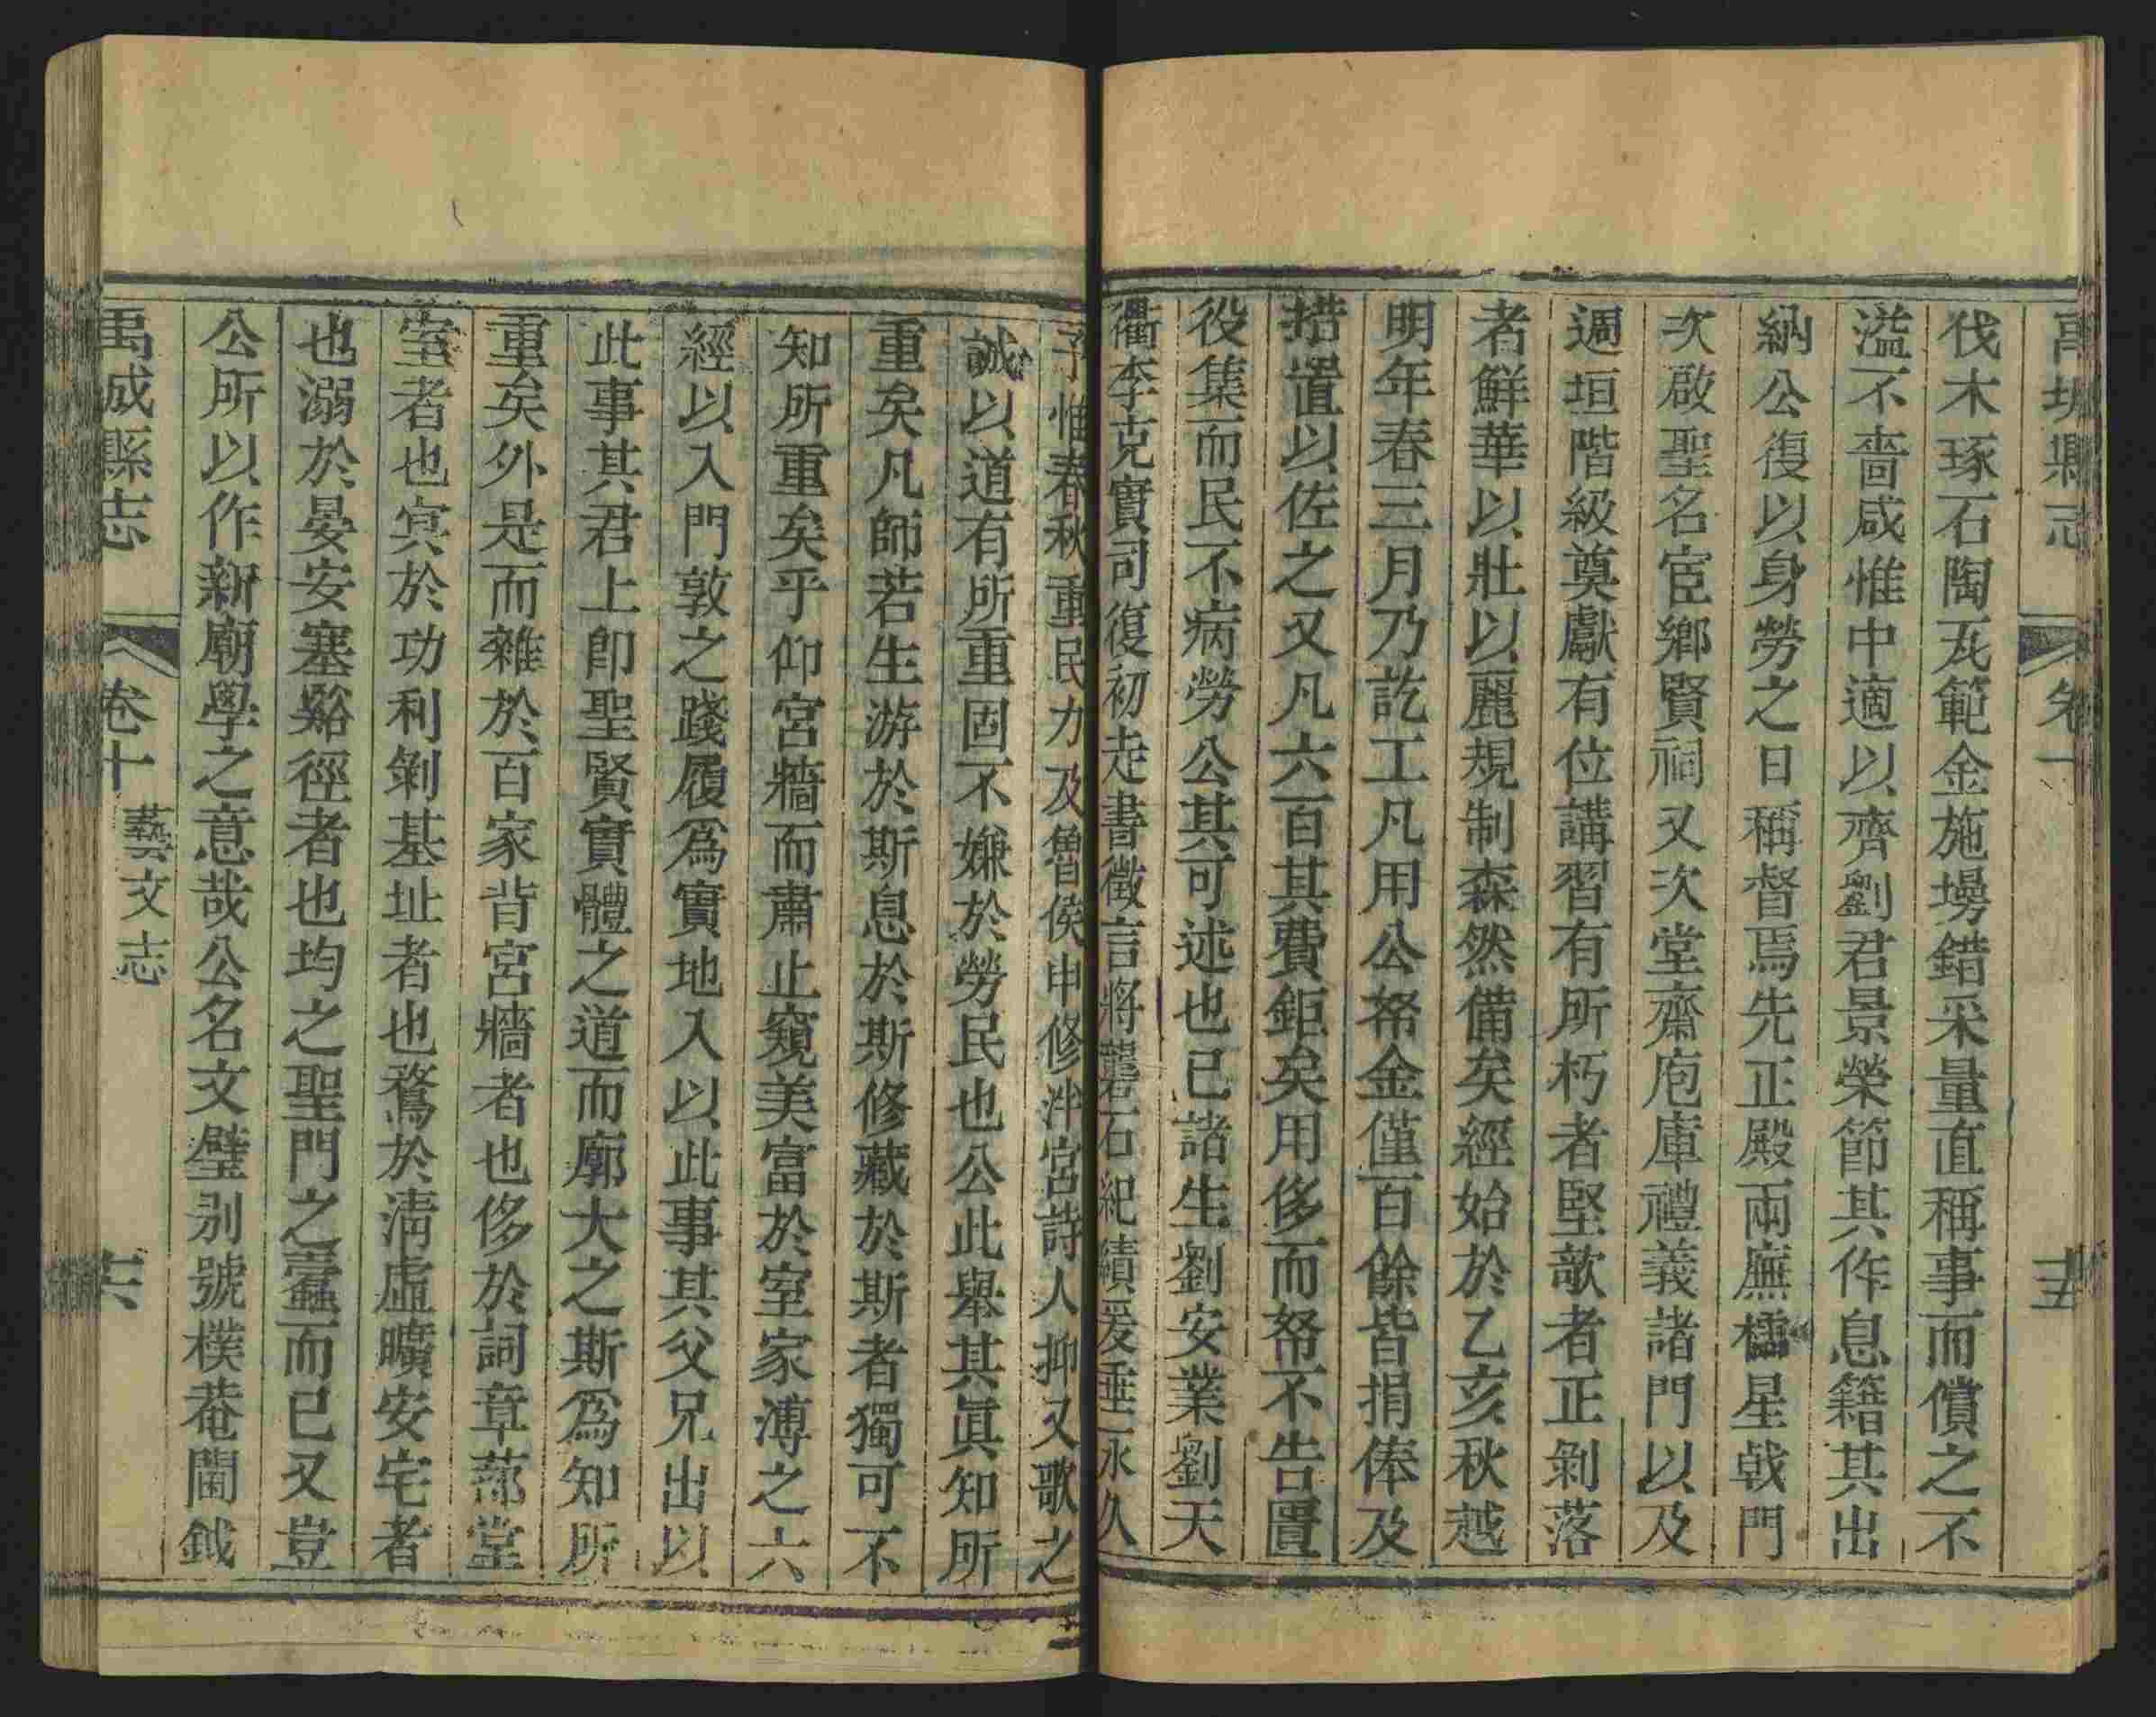 禹城縣志 卷十 十五
伐木琢石陶瓦範金施墁錯采量直稱事而償之不
溢不嗇咸惟中適以齊劉君景榮節其作息籍其出
納公復以身勞之日稱督焉先正殿兩廡櫺星戟門
次啟聖名宦鄉賢祠又次堂齋庖庫禮義諸門以及
週垣階級奠獻有位講習有所朽者堅欹者正剝落
者鮮華以壯以麗規制森然備矣經始於乙亥秋越
明年春三月乃訖工凡用公帑金僅百餘皆捐俸及
措置以佐之又凡六百其費鉅矣用侈而帑不告匱
役集而民不病勞公其可述也已諸生劉安業劉天
衢李克實司復初走書徵言將礱石紀績爰垂永久
予惟春秋重民力及魯侯申修泮宮詩人抑又歌之
誠以道有所重固不嫌於勞民也公此舉其眞知所
重矣凡師若生游於斯息於斯修藏於斯者獨可不
知所重矣乎仰宮牆而肅止窺美富於室家溥之六
經以入門敦之踐履爲實地入以此事其父兄出以
此事其君上卽聖賢實體之道而廓大之斯爲知所
重矣外是而雜於百家背宮牆者也侈於詞章蔀堂
室者也㝠於功利剝基址者也鶩於淸虛曠安宅者
也溺於晏安塞谿徑者也均之聖門之蠧而已又豈
公所以作新廟學之意哉公名文璧别號樸菴閫鉞
禹城縣志 卷十 藝文志 十六